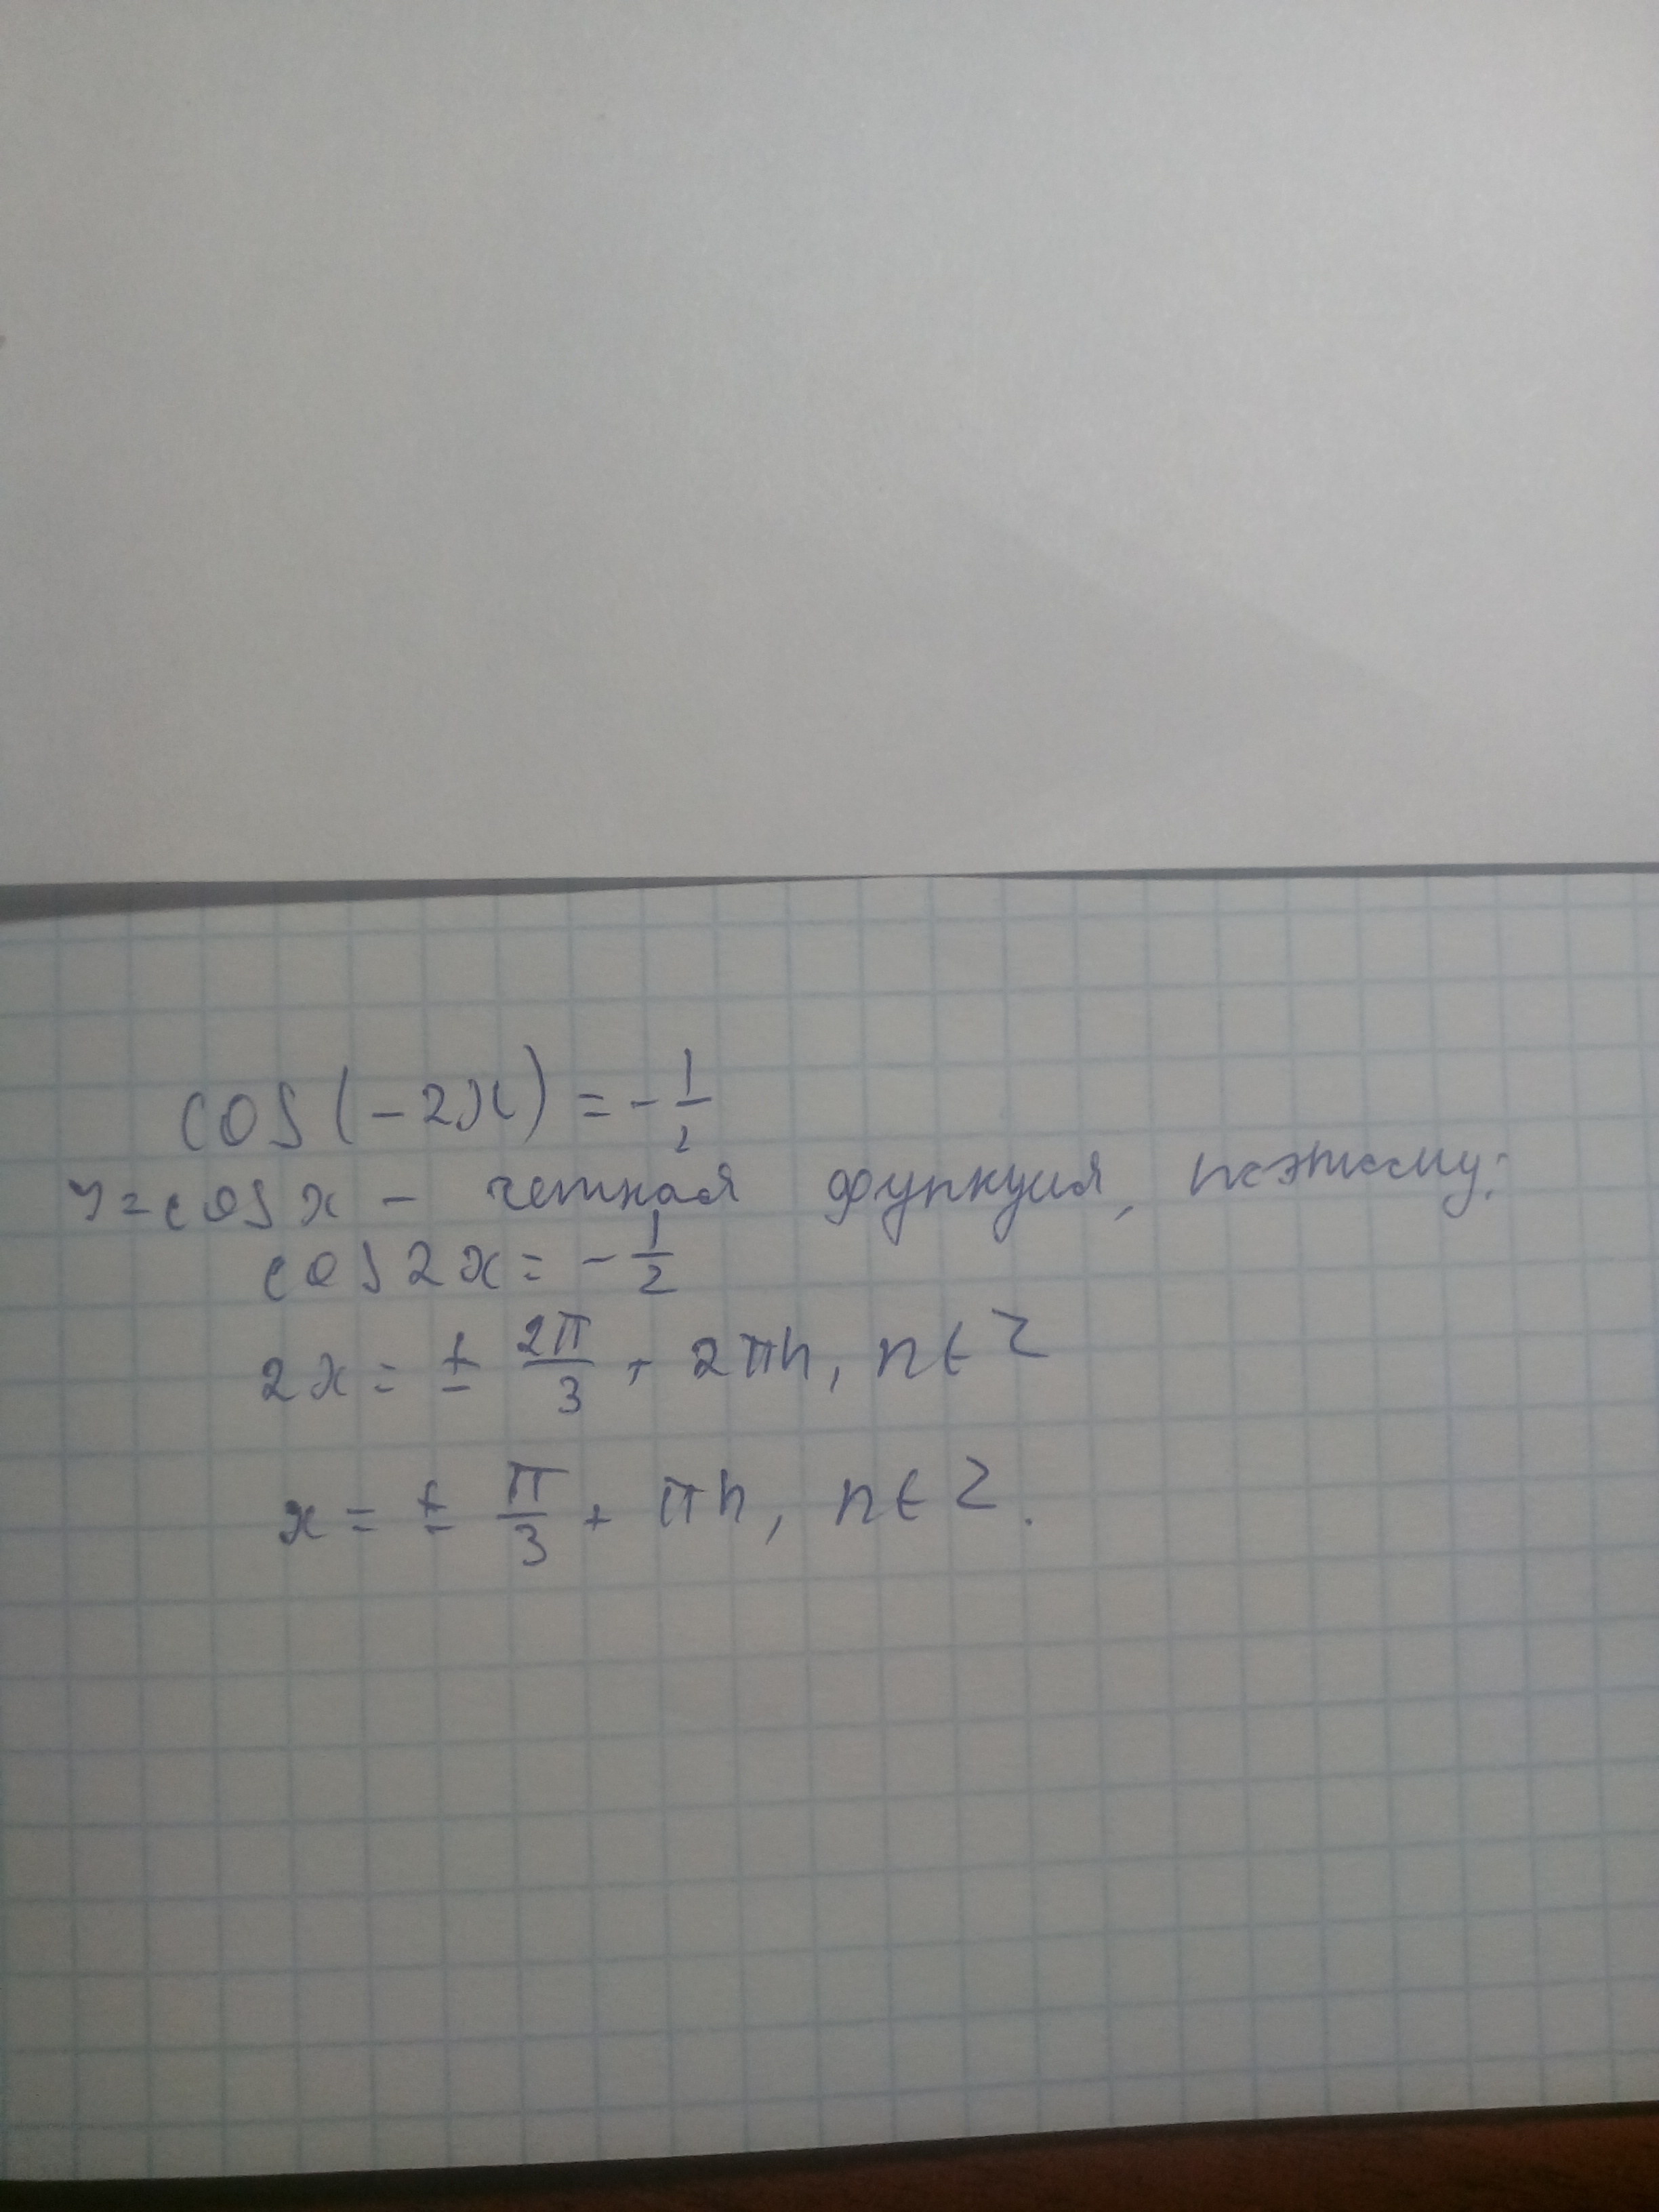 cos(-2x) = -1/2
y=cos x - четная функция, поэтому:
cos 2x = -1/2
2x = ± 2π/3 + 2πn, n ∈ Z
x = ± π/3 + πn, n ∈ Z.